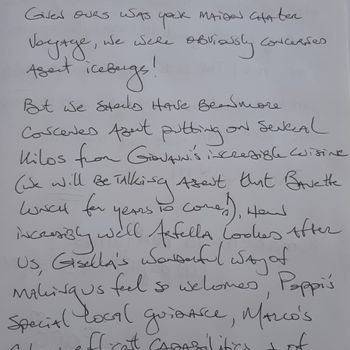 Given ours was your maiden charter
voyage, we were obviously concerned
about icebergs!
But we should have been more
concerned about putting on several
kilos from Giovanni's incredible cuisine
(we will be talking about that
lunch for years to come!), how
incredibly well looked after
us, Gisella's wonderful way of
making us feel so welcomed, Poppi's
special local guidance, Marco's
efficient capabilities + of